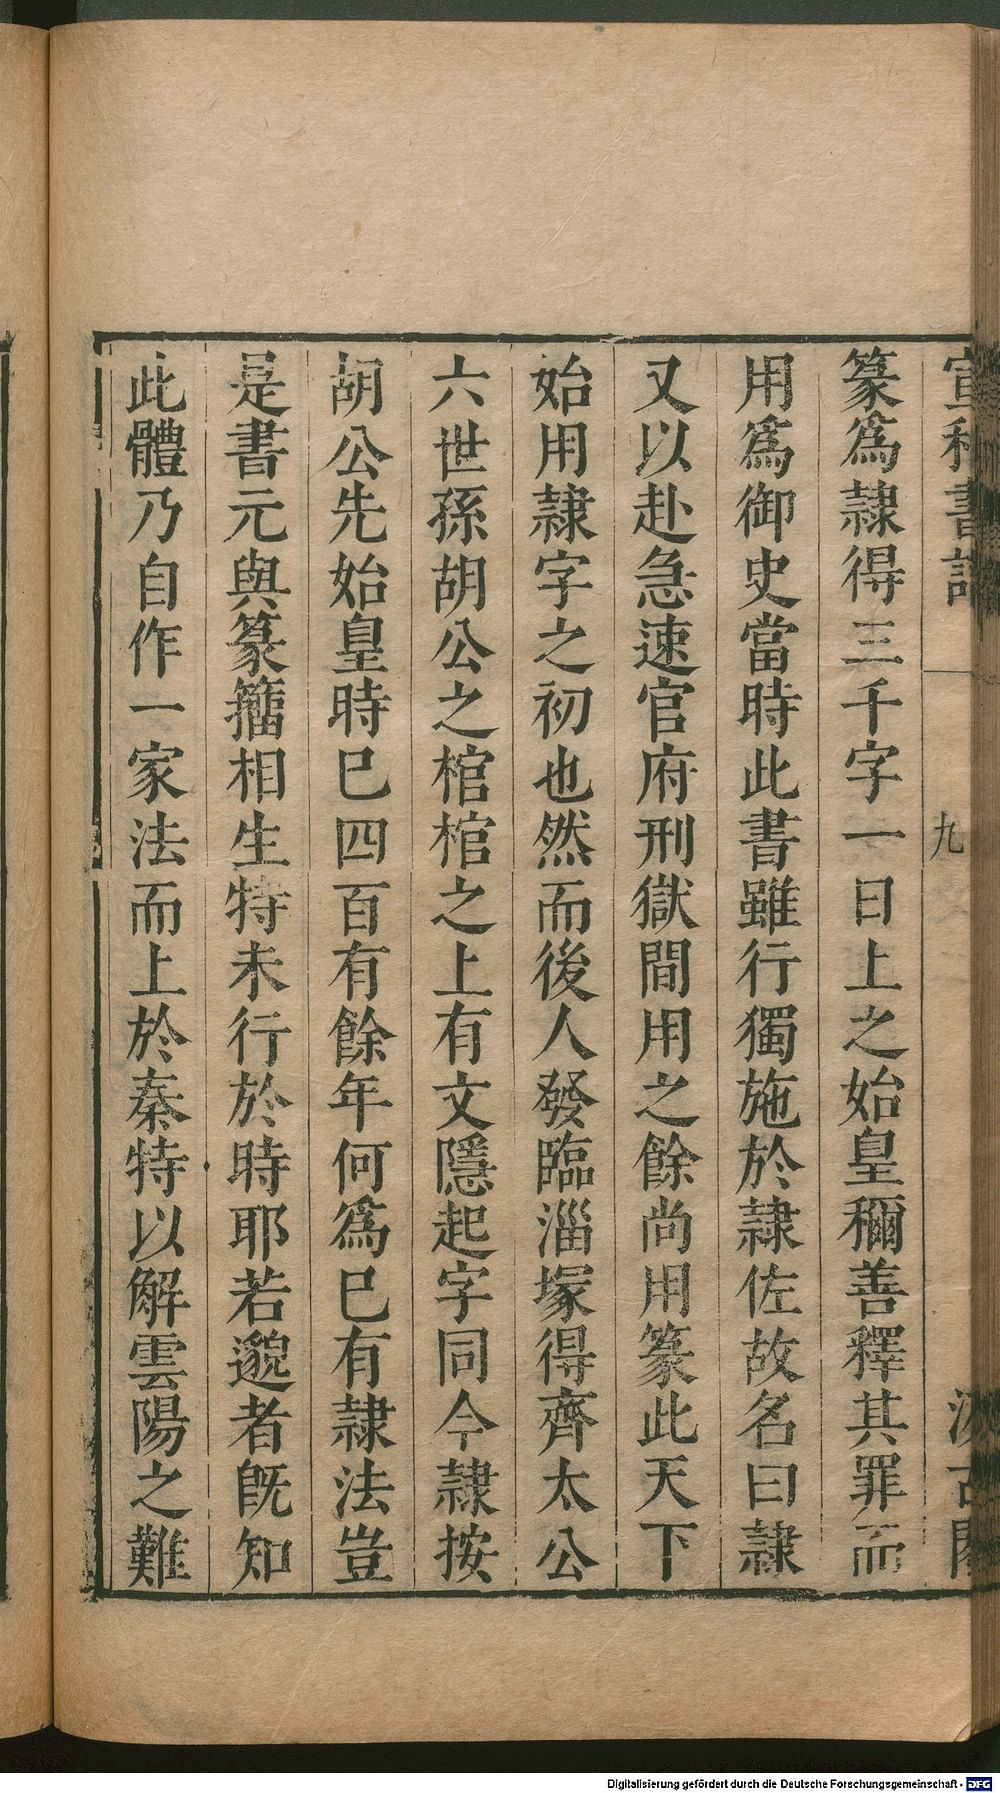 宣和書譜 九 汲古閣
篆爲隷得三千字一日上之始皇稱善釋其罪而
用爲御史當時此書雖行獨施於隷佐故名曰隷
又以赴急速官府刑獄間用之餘尚用篆此天下
始用隷字之初也然而後人發臨淄塚得齊太公
六世孫胡公之棺棺之上有文隱起字同今隷按
胡公先始皇時巳四百有餘年何爲巳有隷法豈
是書元與篆籀相生特未行於時耶若邈者旣知
此體乃自作一家法而上於秦特以解雲陽之難
Digitalisierung gefördert durch die Deutsche Forschungsgemeinschaft - DFG